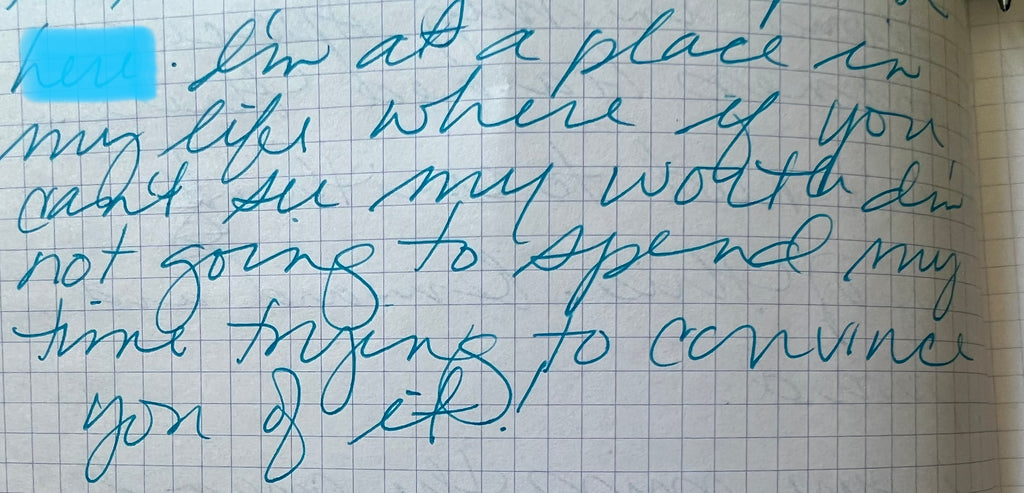 here. I'm at a place in
my life where if you
can't see my worth I'm
not going to spend my
time trying to convince
you of it!